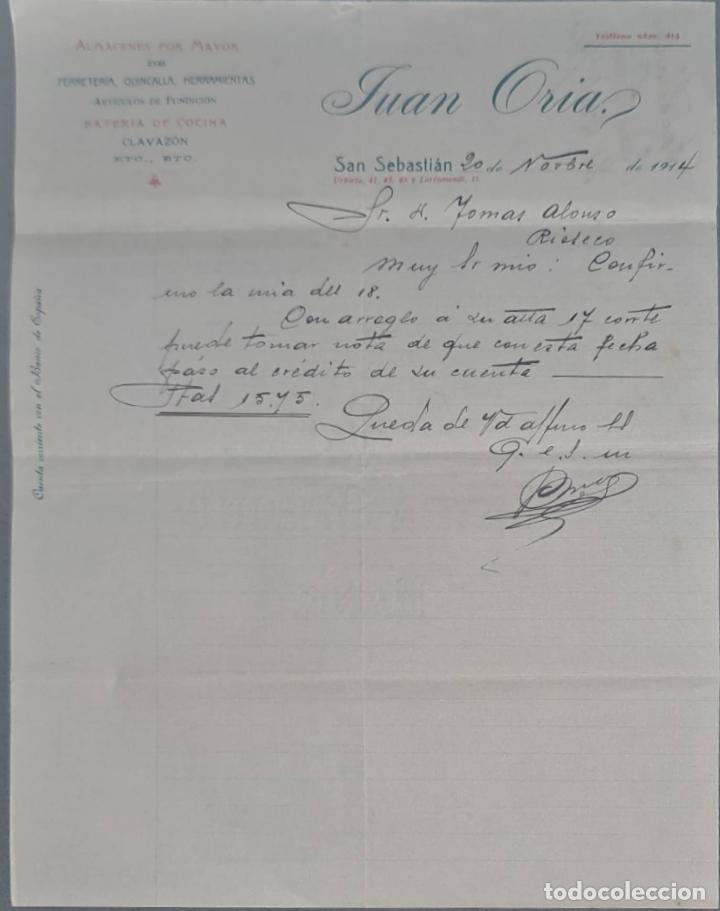 ALMACENES POR MAYOR
DE
FERRETERÍA, QUINCALLA, HERRAMIENTAS
ARTÍCULOS DE FUNDICIÓN
BATERÍA DE COCINA
CLAVAZÓN
ETC., ETC.
Teléfono núm. 414
Juan Oria.
San Sebastián 20 de Novbre de 1914
Urbieta, y Larramendi,
Sr. D. Tomas Alonso
Rioseco
Muy Sr mio: Confir-
mo la mia del 18.
Con arreglo á su atta 17 corte
puede tomar nota de que con esta fecha
paso al crédito de su cuenta
Ptas 15.75.
Queda de Vd affmo SS
q. e. s. m
Cuenta corriente con el Banco de España
todocoleccion